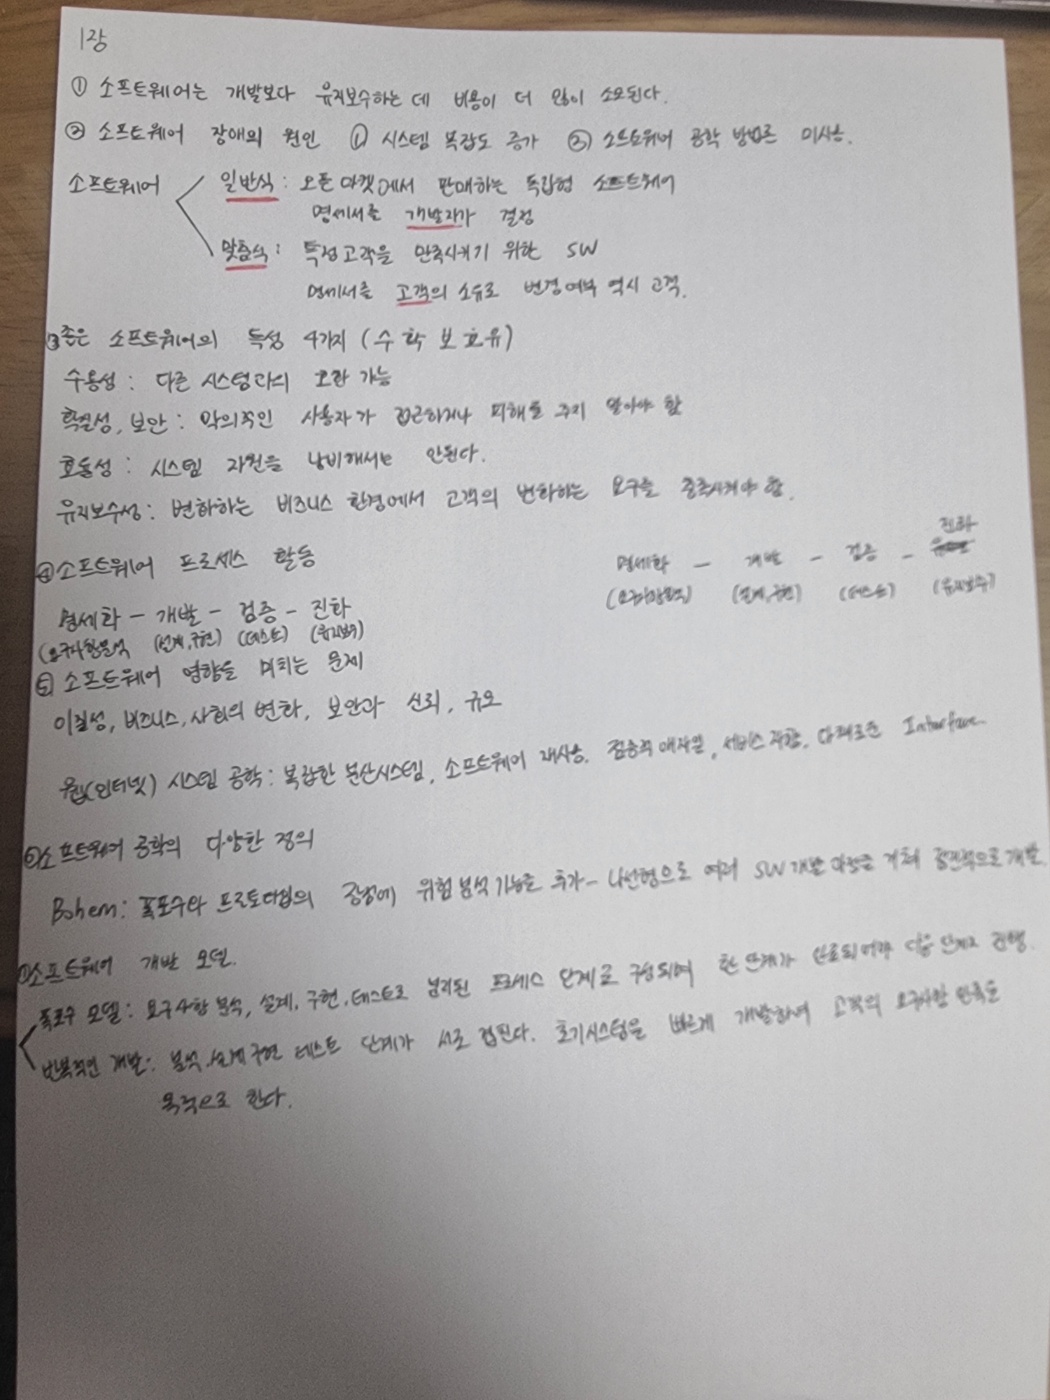 1장
① 소프트웨어는 개발보다 유지보수하는 데 비용이 더 많이 소요된다.
② 소프트웨어 장애의 원인 ① 시스템 복잡도 증가 ② 소프트웨어 공학 방법론 미사용.
소프트웨어 일반식 : 오픈마켓에서 판매하는 독립형 소프트웨어
명세서를 개발자가 결정
맞춤식 : 특정고객을 만족시키기 위한 SW
명세서를 고객의 소유로 변경여부 역시 고객.
③좋은 소프트웨어의 특성 4가지 (수 확 보 효 유)
수용성 : 다른 시스템과의 호환 가능
확실성, 보안 : 악의적인 사용자가 접근하거나 피해를 주지 말아야 함
효율성 : 시스템 자원을 낭비해서는 안된다.
유지보수성 : 변화하는 비즈니스 환경에서 고객의 변화하는 요구를 충족시켜야 함.
④소프트웨어 프로세스 활동
명세화 - 개발 - 검증 - 진화
(요구사항분석 (설계,구현) (테스트) (유지보수)
명세화 - 개발 - 검증 - 진화
(설계,구현) (테스트) (유지보수)
⑤ 소프트웨어 영향을 미치는 문제
이질성, 비즈니스, 사회의 변화, 보안과 신뢰, 규모
웹(인터넷) 시스템 공학 : 복잡한 분산시스템, 소프트웨어 재사용. 점증적 애자일, 서비스 지향, 다채로운 Interface
⑥소프트웨어 공학의 다양한 정의
Bohem : 폭포수와 프로토타입의 장점에 위험 분석 기능을 추가 - 나선형으로 여러 SW 개발 과정을 거쳐 점진적으로 개발.
⑦소프트웨어 개발 모델.
폭포수 모델 : 요구사항 분석, 설계, 구현, 테스트로 분리된 프로세스 단계로 구성되며 한 단계가 완료되어야 다음 단계로 진행.
반복적인 개발 : 분석, 설계 구현 테스트 단계가 서로 겹친다. 초기시스템을 빠르게 개발하여 고객의 요구사항 만족을
목적으로 한다.